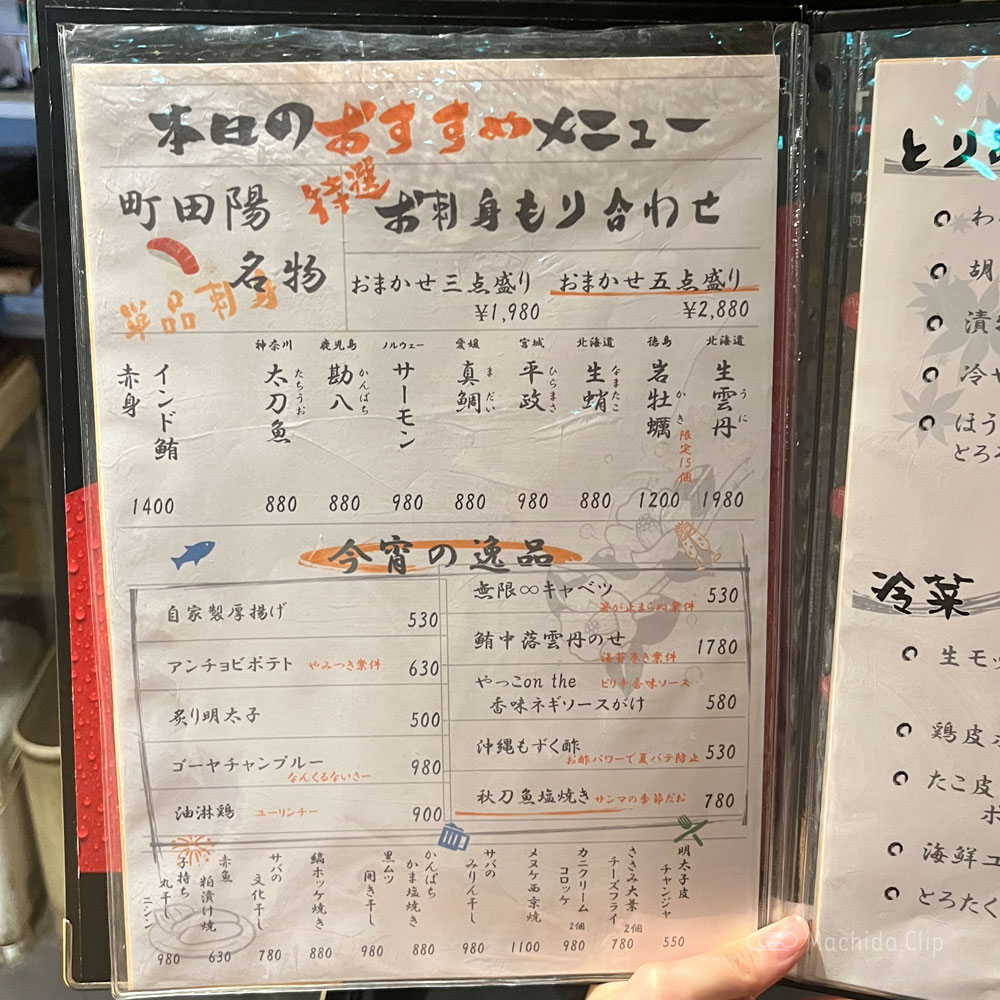 本日のおすすめメニュー
町田陽
名物
特選
お刺身もり合わせ
おまかせ三点盛り
¥1,980
おまかせ五点盛り
¥2,880
単品刺身
北海道
生雲丹
うに
1980
徳島
岩牡蠣
かき
限定15個
1200
北海道
生蛸
なまたこ
880
宮城
平政
ひらまさ
980
愛媛
真鯛
まだい
880
ノルウェー
サーモン
980
鹿児島
勘八
かんぱち
880
神奈川
太刀魚
たちうお
880
インド鮪
赤身
1400
今宵の逸品
自家製厚揚げ 530
アンチョビポテト やみつき案件 630
炙り明太子 500
ゴーヤチャンプルー 980
なんくるないさー
油淋鶏 ユーリンチー 900
無限∞キャベツ 530
箸が止まらぬ案件
鮪中落雲丹のせ 1780
海苔巻き案件
やっこon the ピリ辛香味ソース
香味ネギソースがけ 580
沖縄もずく酢 530
お酢パワーで夏バテ防止
秋刀魚塩焼き サンマの季節だお 780
明太子皮
チャンジャ
550
ささみ大葉
チーズフライ
2個
780
カニクリーム
コロッケ
2個
980
メヌケ西京焼
1100
サバの
みりん干し
980
かんぱち
かま塩焼き
880
黒ムツ
開き干し
980
縞ホッケ焼き
880
サバの
文化干し
780
赤魚
粕漬け焼
630
子持ち
丸干し
ニシン
980
とり
わ
胡
漬
冷や
ほう
とろろ
冷菜
生モッ
鶏皮
たこ皮
ポ
海鮮ユ
とろたく
Machida Clip